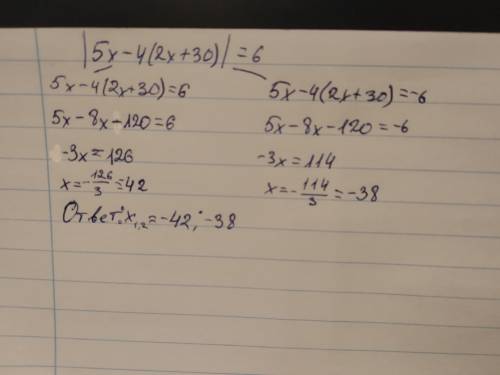 |5x-4(2x+30)|=6
5x-4(2x+30)=6
5x-8x-120=6
-3x=126
x=-126/3=-42
5x-4(2x+30)=-6
5x-8x-120=-6
-3x=114
x=-114/3=-38
Ответ: x1,2=-42;-38